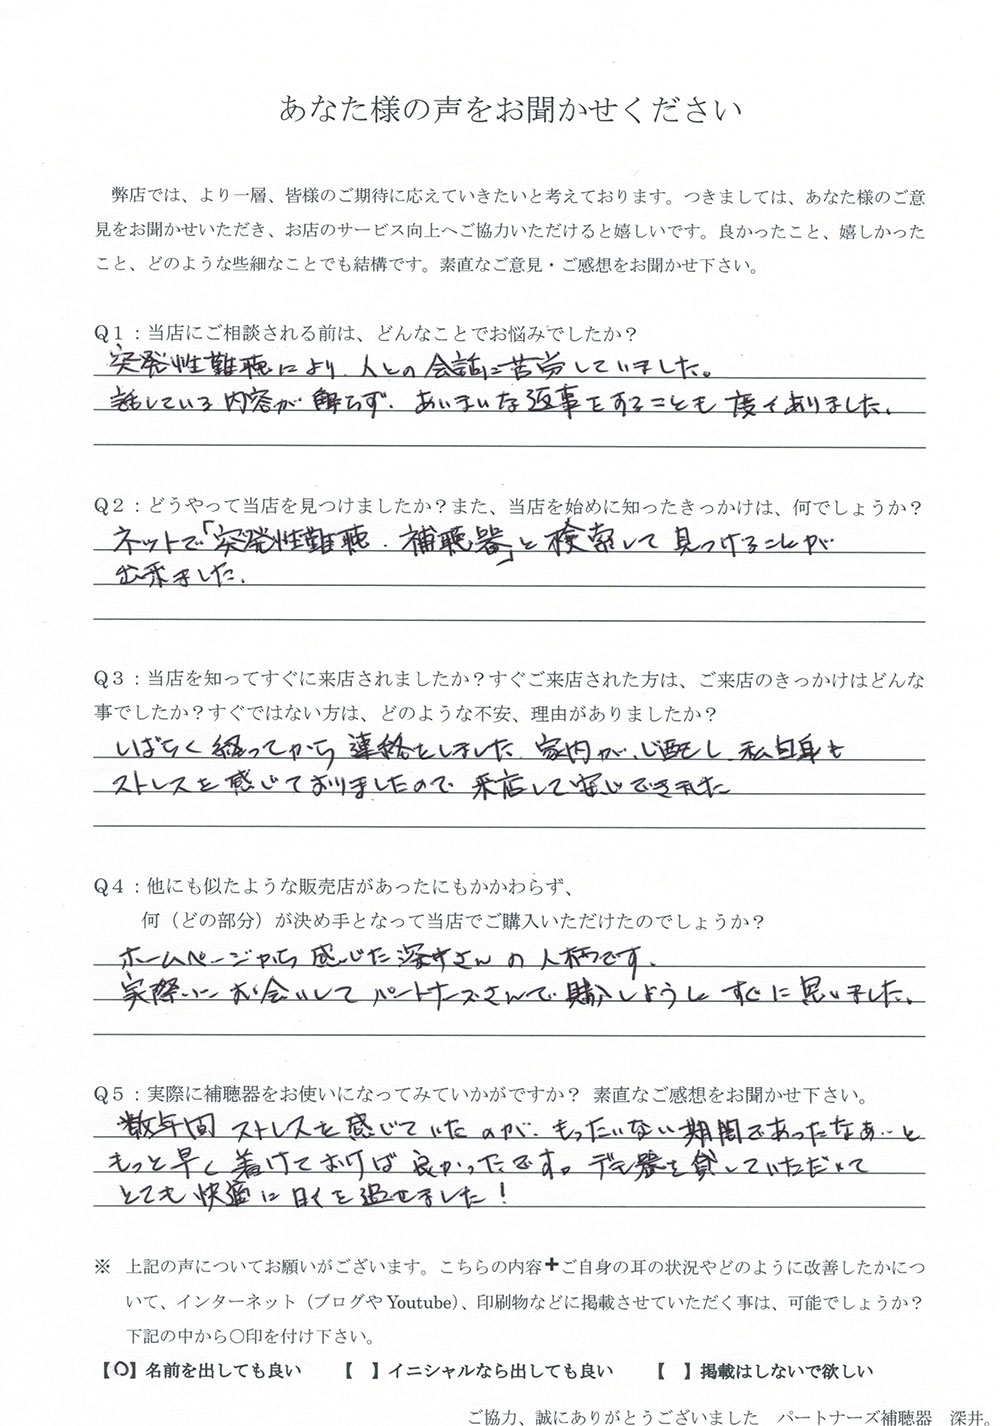 あなた様の声をお聞かせください
弊店では、より一層、皆様のご期待に応えていきたいと考えております。つきましては、あなた様のご意
見をお聞かせいただき、お店のサービス向上へご協力いただけると嬉しいです。良かったこと、嬉しかった
こと、どのような些細なことでも結構です。素直なご意見・ご感想をお聞かせ下さい。
Q1：当店にご相談される前は、どんなことでお悩みでしたか？
突発性難聴により、人との会話に苦労していました。
話している内容が解らず、あいまいな返事をすることも度々ありました。
Q2：どうやって当店を見つけましたか？また、当店を始めに知ったきっかけは、何でしょうか？
ネットで「突発性難聴．補聴器」と検索して見つけることが
出来ました。
Q3：当店を知ってすぐに来店されましたか？すぐご来店された方は、ご来店のきっかけはどんな
事でしたか？すぐではない方は、どのような不安、理由がありましたか？
しばらく経ってから連絡をしました。家内が心配し、私自身も
ストレスを感じておりましたので来店して安心できました
Q4：他にも似たような販売店があったにもかかわらず、
何（どの部分）が決め手となって当店でご購入いただけたのでしょうか？
ホームページから感じた深井さんの人柄です。
実際にお会いしてパートナーズさんで購入しようとすぐに思いました。
Q5：実際に補聴器をお使いになってみていかがですか？ 素直なご感想をお聞かせ下さい。
数年間ストレスを感じていたのが、もったいない期間であったなぁ…と
もっと早く着けておけば良かったです。デモ器を貸していただいて
とても快適に日々を過せました！
※ 上記の声についてお願いがございます。こちらの内容＋ご自身の耳の状況やどのように改善したかにつ
いて、インターネット（ブログやYoutube）、印刷物などに掲載させていただく事は、可能でしょうか？
下記の中から〇印を付け下さい。
【〇】名前を出しても良い 【 】イニシャルなら出しても良い 【 】掲載はしないで欲しい
ご協力、誠にありがとうございました パートナーズ補聴器 深井。